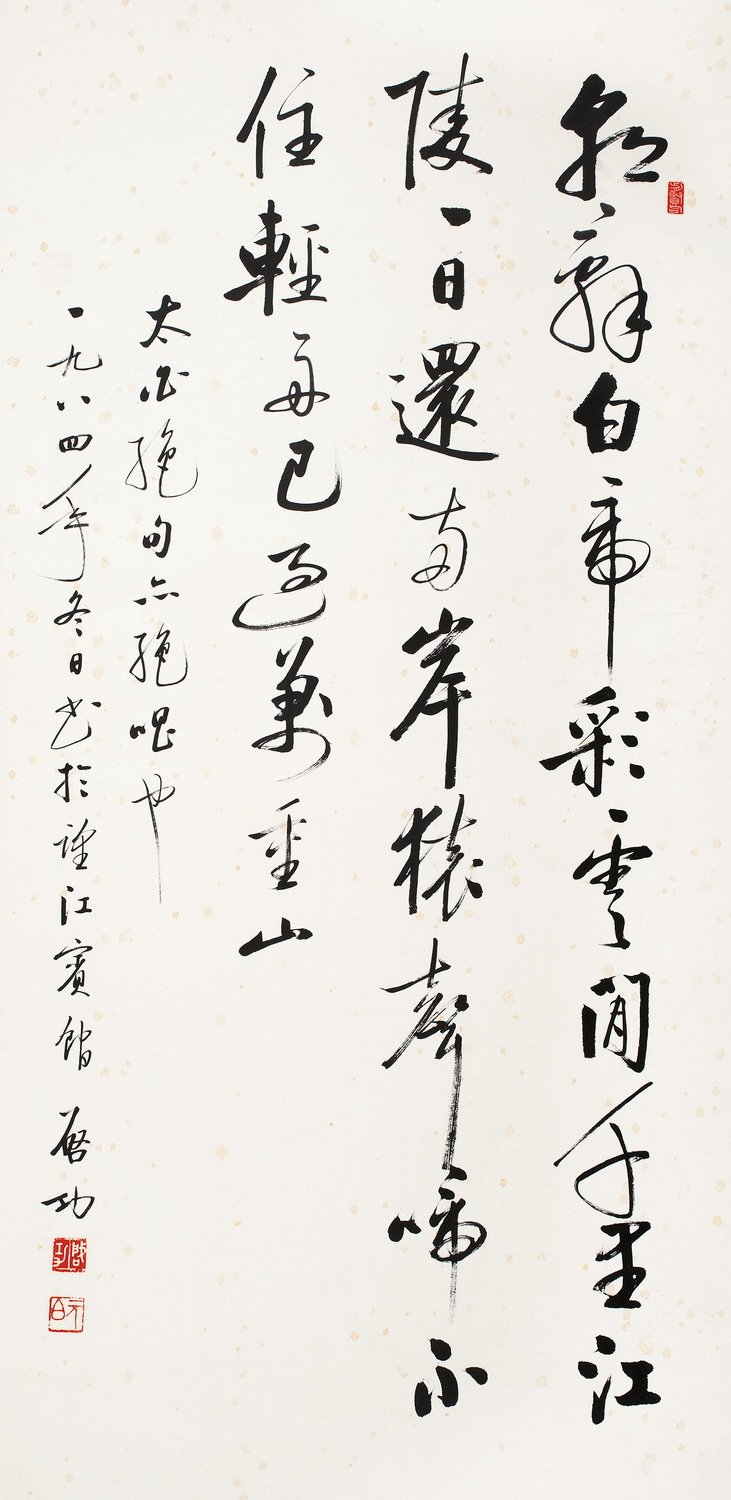 朝辭白帝彩雲閒千里江
陵一日還兩岸猿聲啼不
住輕舟已過萬重山
太白絕句亦絕唱也
一九八四年冬日書於江賓館 啓功
啓功
元白